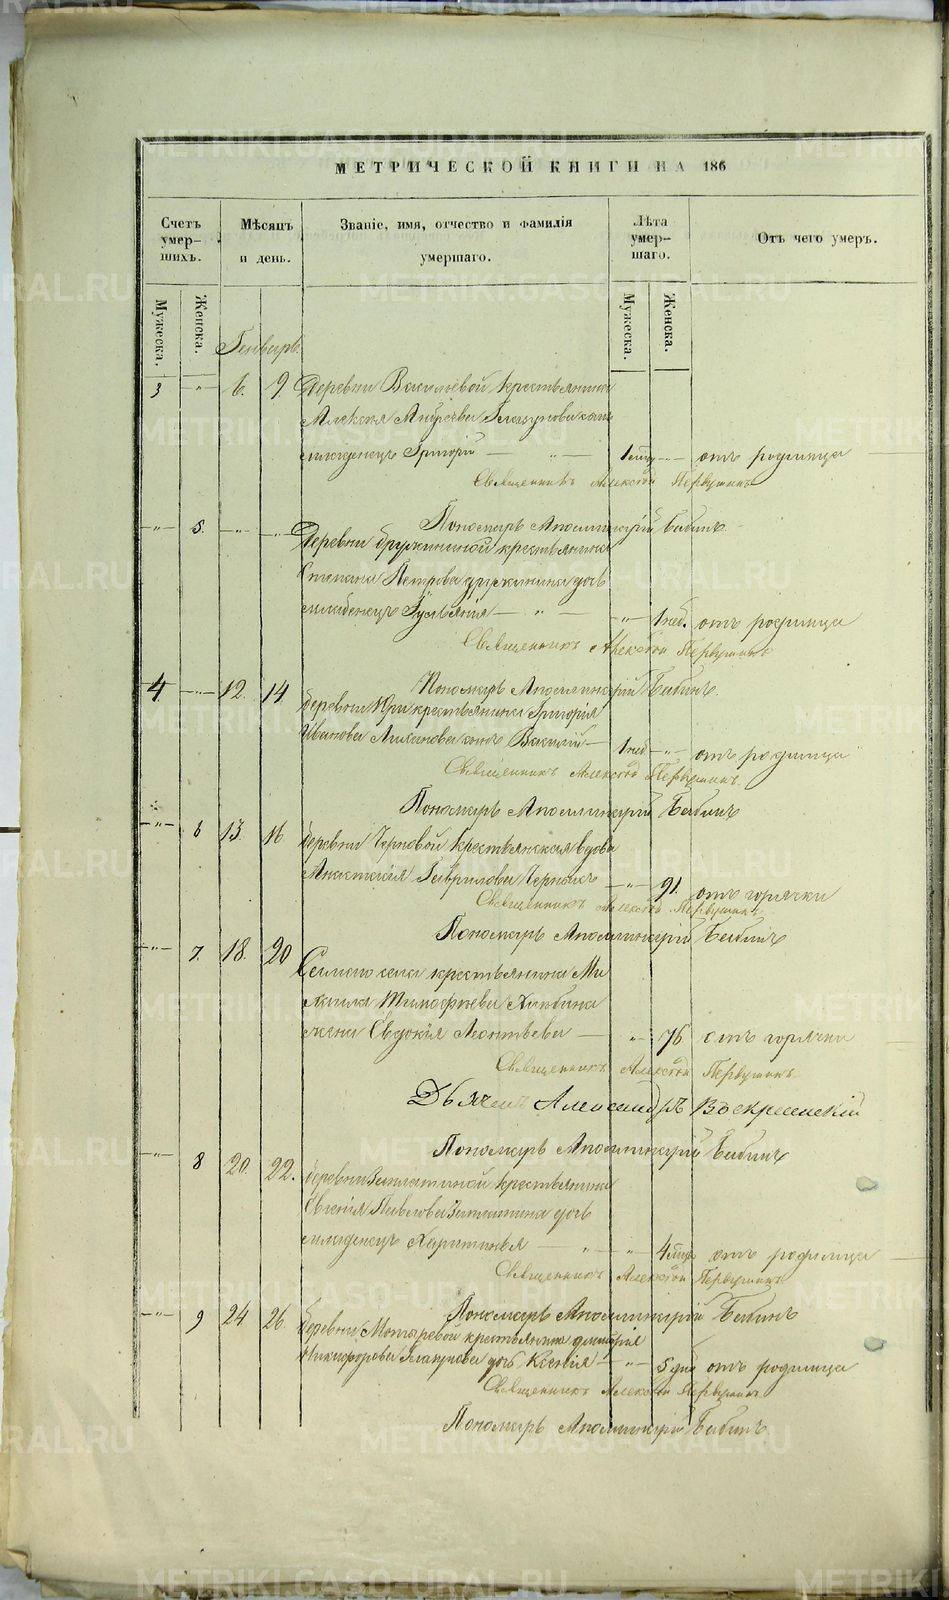 МЕТРИЧЕСКОЙ КНИГИ НА 186
Счетъ умер-шихъ.
Мѣсяцъ и день.
Званіе, имя, отчество и фамилія умершаго.
Лѣта умер-шаго.
Отъ чего умеръ.
Мужеска.
Женска.
Мужеска.
Женска.
Генварь.
3 -"- 6. 9. Деревни Васильевой крестьянина
Алексія Андреева Глазунова сынъ
младенецъ Григорій — " — 1 мѣц -"- отъ родимца
Священникъ Алексѣй Первушинъ
Пономарь Аполлинарій Бабинъ
-"- 5. -"- -"- Деревни Дружининой крестьянина
Степана Петрова Дружинина дочь
младенецъ Іуліанія — " — -"- 1 нед. отъ родимца
Священникъ Алексѣй Первушинъ
Пономарь Аполлинарій Бабинъ.
4. -"- 12. 14. Деревни крестьянина Григорія
Иванова сынъ Василій — 1 нед -"- отъ родимца
Священникъ Алексѣй Первушинъ.
Пономарь Аполлинарій Бабинъ
-"- 6 13. 16. Деревни Черновой крестьянская вдова
Анастасія Гаврилова -"- 91. отъ горячки
Священникъ Алексѣй Первушинъ.
Пономарь Аполлинарій Бабинъ
-"- 7. 18. 20 села крестьянина Ми
хаила Тимофѣева
жена Евдокія Леонтьева — -"- 76 отъ горячки
Священникъ Алексѣй Первушинъ.
Дьячекъ Александръ Воскресенскій
Пономарь Аполлинарій Бабинъ
-"- 8 20. 22. Деревни Заплатиной крестьянина
Евгенія Павлова Заплатина дочь
младенецъ Харитинья — " -"- 4 мѣц отъ родимца
Священникъ Алексѣй Первушинъ
Пономарь Аполлинарій Бабинъ
-"- 9 24 26. Деревни Мотыревой крестьянина Димитрія
Никифорова Глазунова дочь Ксенія — -"- 5 дне отъ родимца
Священникъ Алексѣй Первушинъ
Пономарь Аполлинарій Бабинъ
METRIKI.GASO-URAL.RU